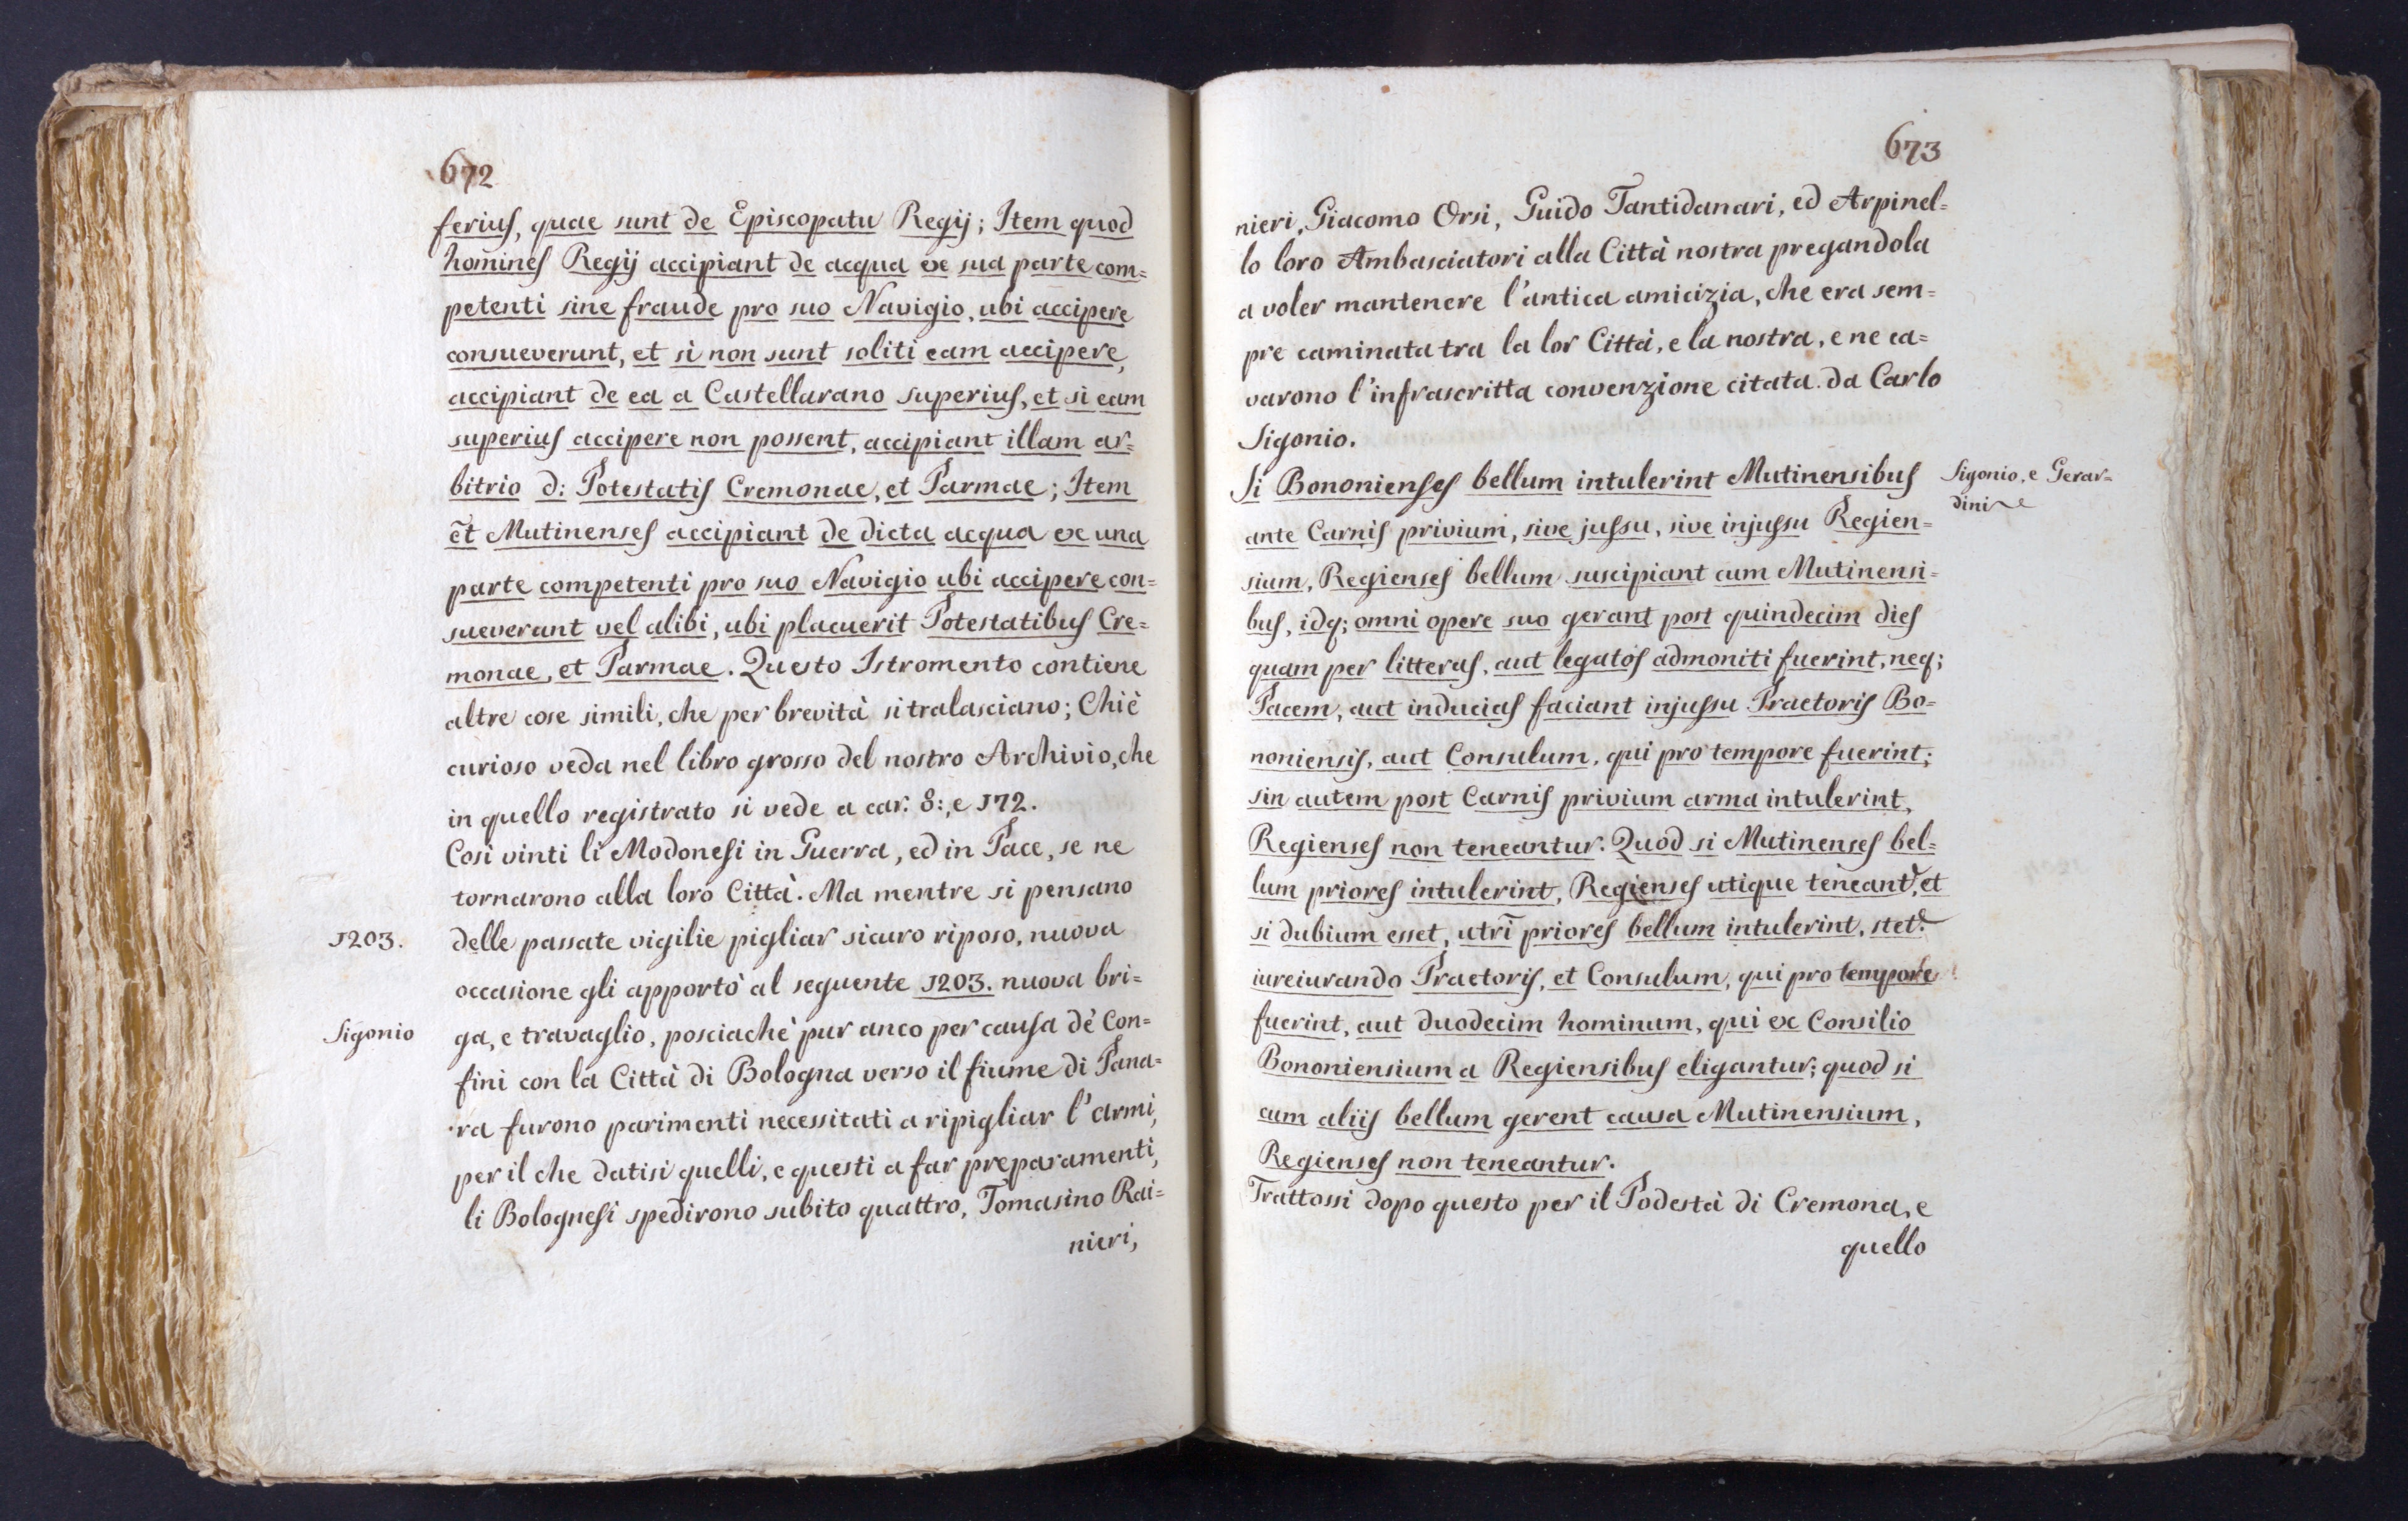 672
ferius, quae sunt de Episcopatu Regij; Item quod
homines Regij accipiant de acqua ex sua parte com=
petenti sine fraude pro suo Navigio, ubi accipere
consueverunt, et si non sunt soliti eam accipere,
accipiant de ea a Castellarano superius, et si eam
superius accipere non possent, accipiant illam ar=
bitrio d: Potestatis Cremonae, et Parmae; Item
et Mutinenses accipiant de dicta acqua ex una
parte competenti pro suo Navigio ubi accipere con=
sueverant vel alibi, ubi placuerit Potestatibus Cre=
monae, et Parmae. Questo Istromento contiene
altre cose simili, che per brevità si tralasciano; Chi è
curioso veda nel libro grosso del nostro Archivio, che
in quello registrato si vede a car: 8:, e 172.
Così vinti li Modonesi in Guerra, ed in Pace, se ne
tornarono alla loro Città. Ma mentre si pensano
1203.
delle passate vigilie pigliar sicuro riposo, nuova
occasione gli apportò al seguente 1203. nuova bri=
Sigonio
ga, e travaglio, posciachè pur anco per causa dè Con=
fini con la Città di Bologna verso il fiume di Pana=
ra furono parimenti necessitati a ripigliar l'armi,
per il che datisi quelli, e questi a far preparamenti,
li Bolognesi spedirono subito quattro, Tomasino Rai=
nieri,
673
nieri, Giacomo Orsi, Guido Tantidanari, ed Arpinel=
lo loro Ambasciatori alla Città nostra pregandola
a voler mantenere l'antica amicizia, che era sem=
pre caminata tra la lor Città, e la nostra, e ne ca=
varono l'infrascritta convenzione citata da Carlo
Sigonio.
Si Bononienses bellum intulerint Mutinensibus
Sigonio, e Gerar=
dini
ante Carnis privium, sive jussu, sive injussu Regien=
sium, Regienses bellum suscipiant cum Mutinensi=
bus, idq; omni opere suo gerant post quindecim dies
quam per litteras, aut legatos admoniti fuerint, neq;
Pacem, aut inducias faciant injussu Praetoris Bo=
noniensis, aut Consulum, qui pro tempore fuerint;
sin autem post Carnis privium arma intulerint,
Regienses non teneantur. Quod si Mutinenses bel=
lum priores intulerint, Regienses utique teneant.r, et
si dubium esset, utri priores bellum intulerint, stet.r
iureiurando Praetoris, et Consulum, qui pro tempore
fuerint, aut duodecim hominum, qui ex Consilio
Bononiensium a Regiensibus eligantur; quod si
cum aliis bellum gerent causa Mutinensium,
Regienses non teneantur.
Trattossi dopo questo per il Podestà di Cremona, e
quello